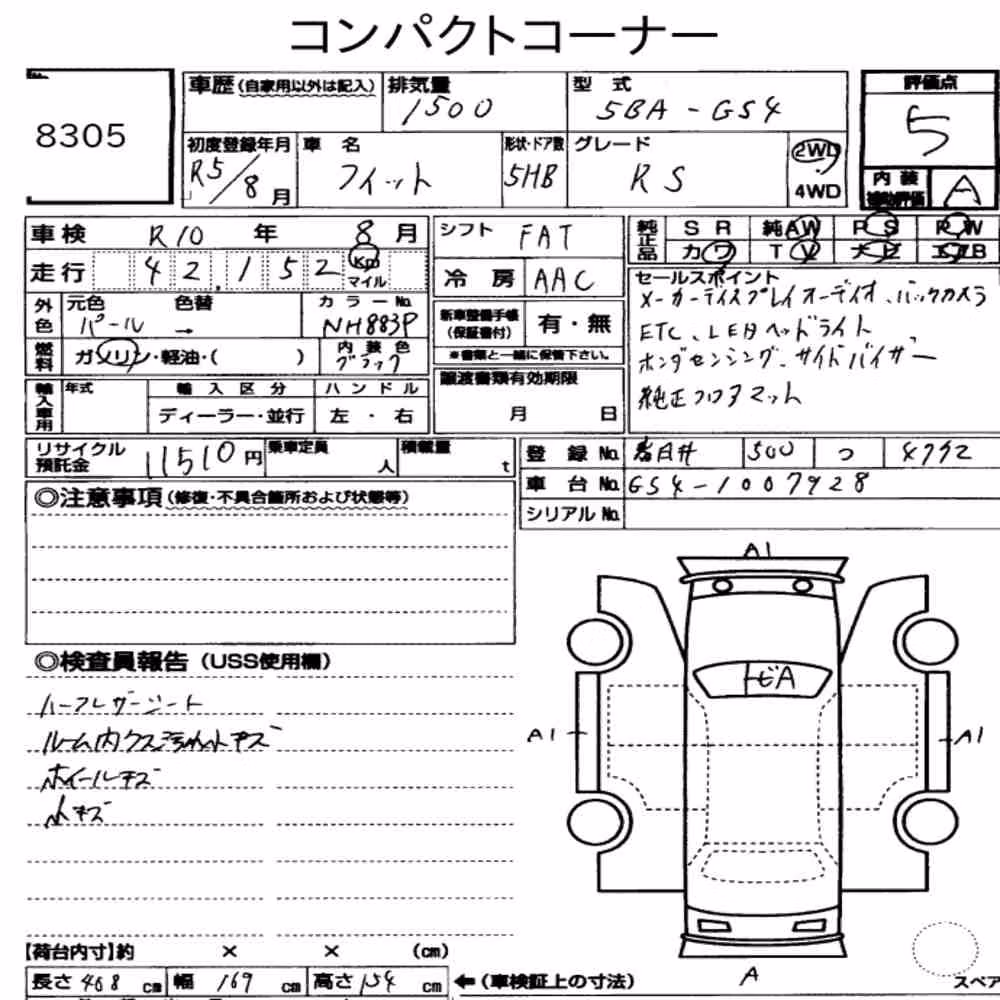 コンパクトコーナー
8305
車歴(自家用以外は記入) 排気量 1500 型式 5BA-GS4 評価点 5
初度登録年月 R5/8月 車名 フィット 形状・ドア数 5HB グレード RS 2WD 4WD
内装補助評価 A
車検 R10年 8月 シフト FAT 純正品 SR 純AW PS PW
カワ TV ナビ エアB
走行 42,152 Km マイル 冷房 AAC
外色 元色 パール 色替 → カラーNo. NH883P
新車整備手帳(保証書付) 有・無
※書類と一緒に保管下さい。
燃料 ガソリン・軽油・( ) 内装色 ブラック
セールスポイント
メーカーディスプレイオーディオ、バックカメラ
ETC、LEDヘッドライト
ホンダセンシング、サイドバイザー
純正フロアマット
輸入車用 年式 輸入区分 ディーラー・並行 ハンドル 左・右
譲渡書類有効期限 月 日
リサイクル預託金 11510円 乗車定員 人 積載量 t
登録No. 春日井 500 つ
車台No. GS4-1007928
シリアルNo.
◎注意事項(修復・不具合箇所および状態等)
◎検査員報告(USS使用欄)
ハーフレザーシート
ルーム内
ホイールキズ
小キズ
A1
トビA
A1
A1
A
【荷台内寸】約 × × (cm)
長さ 408 cm 幅 169 cm 高さ 154 cm ←(車検証上の寸法)
スペア